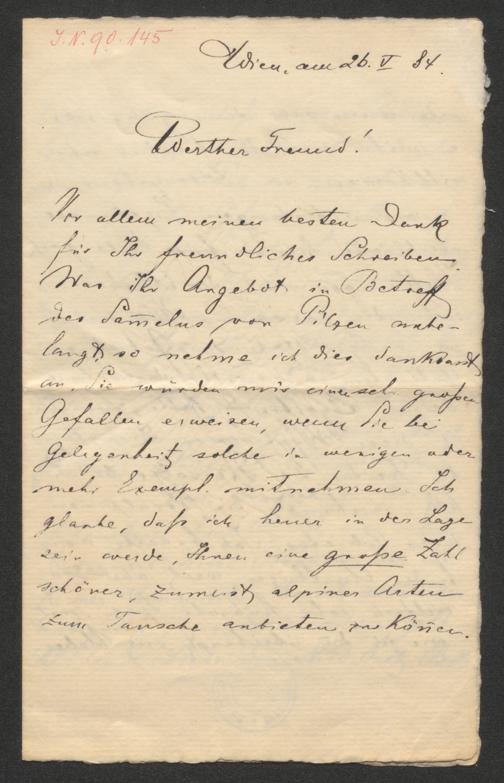 I.N. 90.145
Wien, am 26. V 84.
Werther Freund!
Vor allem meinen besten Dank
für Ihr freundliches Schreiben.
Was Ihr Angebot in Betreff
des Sam̅elns von Pilzen anbe-
langt, so nehme ich dies dankbarst
an. Sie würden mir einen sehr großen
Gefallen erweisen, wenn Sie bei
Gelegenheit solche in wenigen oder
mehr Exempl. mitnehmen. Ich
glaube, daß ich heuer in der Lage
sein werde, Ihnen eine große Zahl
schöner, zumeist alpiner Arten
zum Tausche anbieten zu kön̅en.